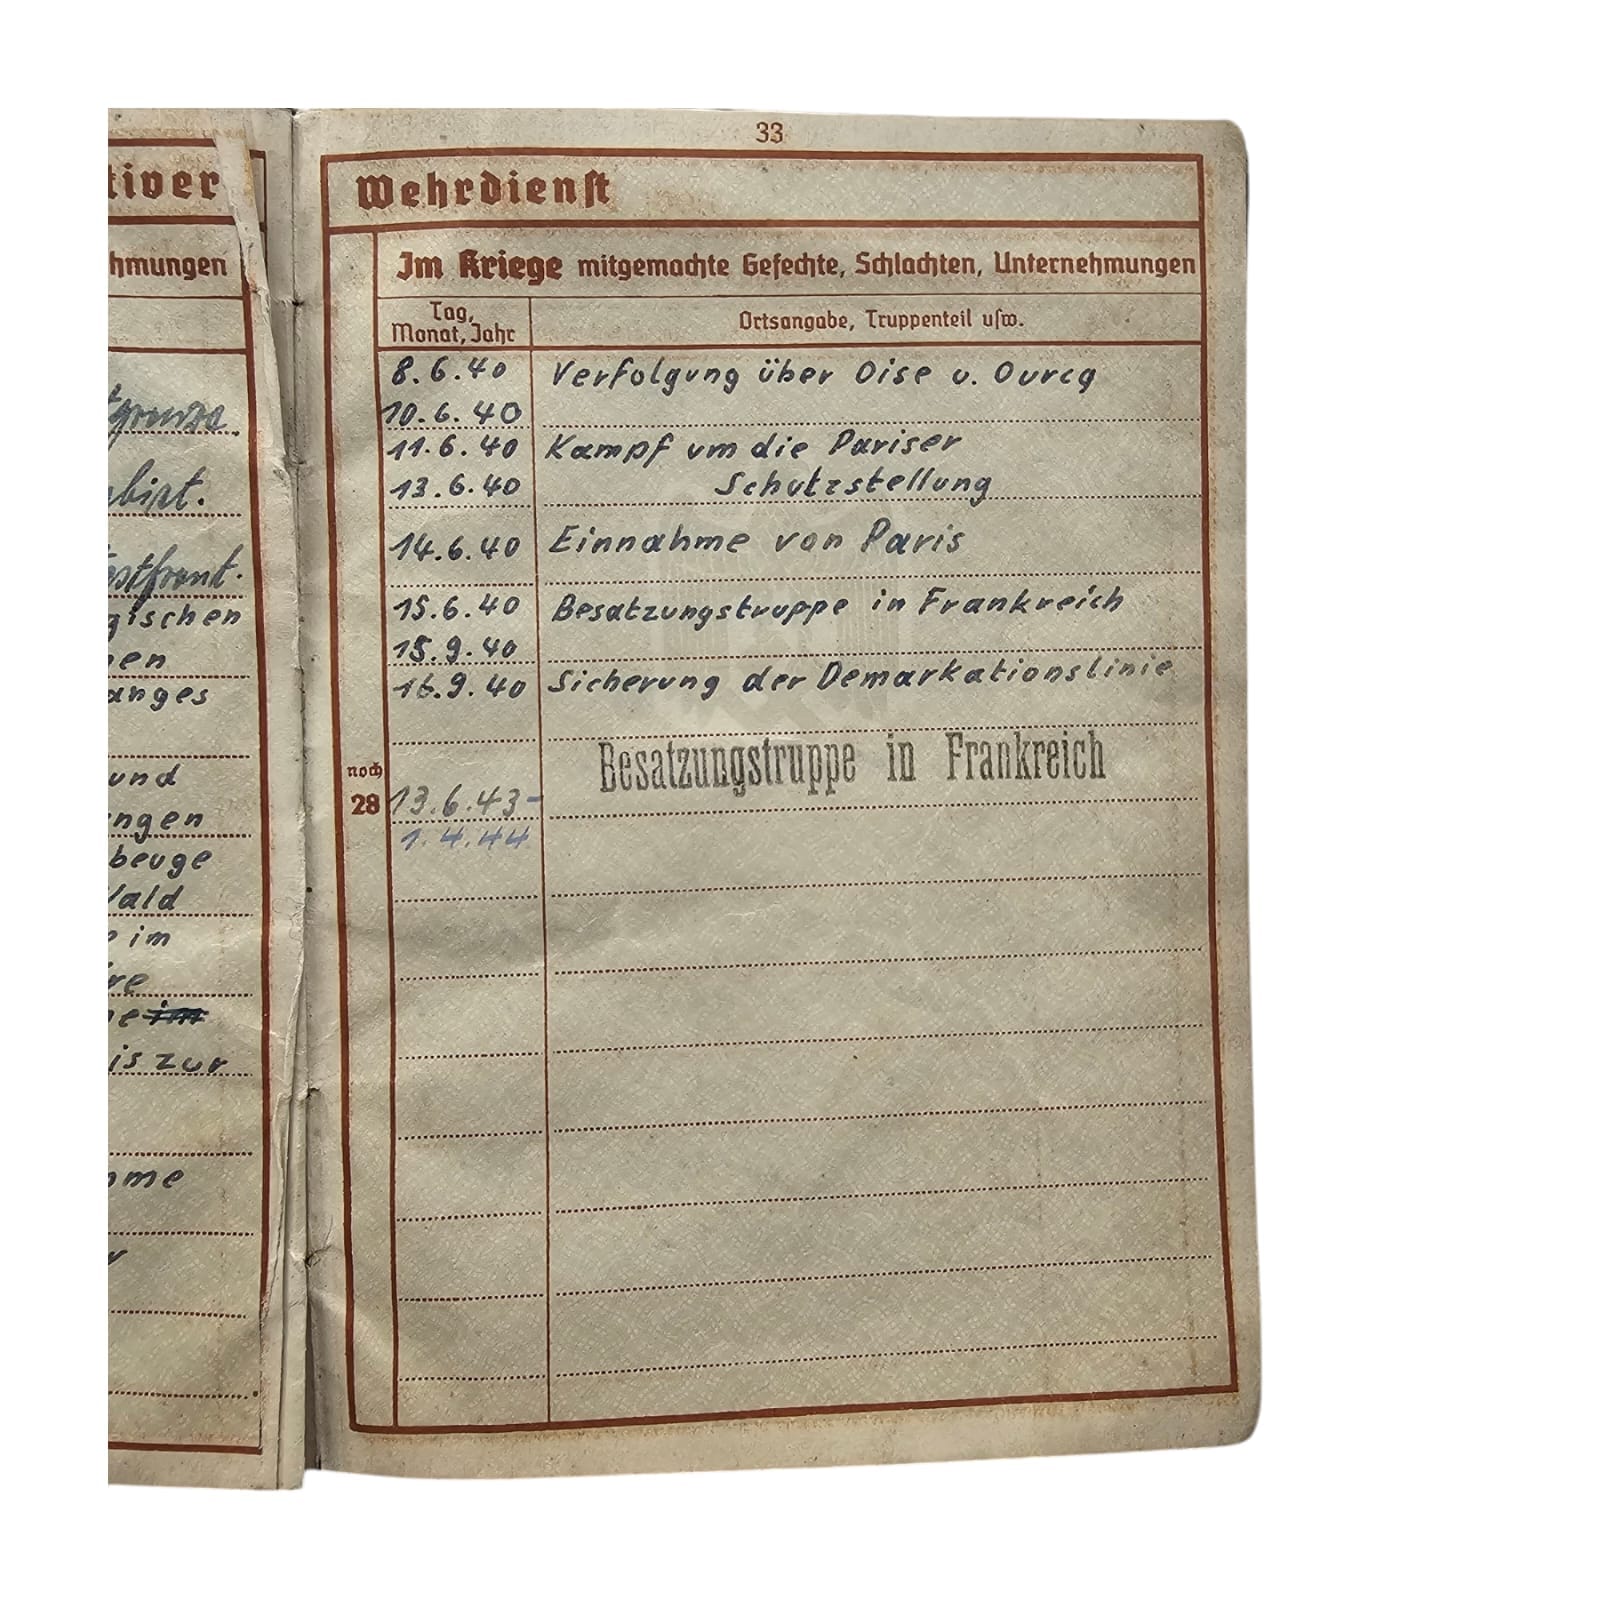 tiver
hmungen
tgrenze.
stfront.
gischen
nen
anges
und
ngen
beuge
Wald
e im
re
ne im
is zur
hme
33
Wehrdienst
Im Kriege mitgemachte Gefechte, Schlachten, Unternehmungen
Tag, Monat, Jahr
Ortsangabe, Truppenteil usw.
noch 28
8.6.40 Verfolgung über Oise u. Ourcq
10.6.40
11.6.40 Kampf um die Pariser
13.6.40 Schutzstellung
14.6.40 Einnahme von Paris
15.6.40 Besatzungstruppe in Frankreich
15.9.40
16.9.40 Sicherung der Demarkationslinie
Besatzungstruppe in Frankreich
13.6.43-
1.4.44